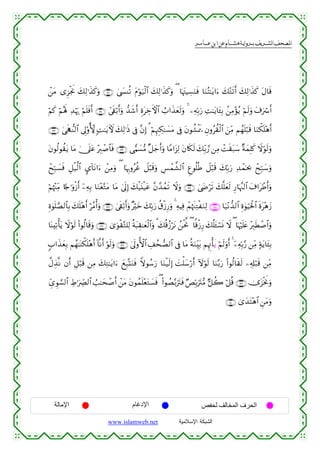 المصحف الشريف برواية هشام عن ابن عامر
قَالَ كَذَٰلِكَ أَتَتْكَ ءَايَٰتُنَا فَنَسِيتَهَا ۖ وَكَذَٰلِكَ ٱلْيَوْمَ تُنسَىٰ وَكَذَٰلِكَ نَجْزِى مَنْ
أَسْرَفَ وَلَمْ يُؤْمِنۢ بِـَٔايَٰتِ رَبِّهِۦ ۚ وَلَعَذَابُ ٱلْءَاخِرَةِ أَشَدُّ وَأَبْقَىٰٓ أَفَلَمْ يَهْدِ لَهُمْ كَمْ
أَهْلَكْنَا قَبْلَهُم مِّنَ ٱلْقُرُونِ يَمْشُونَ فِى مَسَٰكِنِهِمْ ۗ إِنَّ فِى ذَٰلِكَ لَءَايَٰتٍ لِّأُو۟لِى ٱلنُّهَىٰ
وَلَوْلَا كَلِمَةٌ سَبَقَتْ مِن رَّبِّكَ لَكَانَ لِزَامًا وَأَجَلٌ مُّسَمًّى فَٱصْبِرْ عَلَىٰ مَا يَقُولُونَ
وَسَبِّحْ بِحَمْدِ رَبِّكَ قَبْلَ طُلُوعِ ٱلشَّمْسِ وَقَبْلَ غُرُوبِهَا ۖ وَمِنْ ءَانَآئِ ٱلَّيْلِ فَسَبِّحْ
وَأَطْرَافَ ٱلنَّهَارِ لَعَلَّكَ تَرْضَىٰ وَلَا تَمُدَّنَّ عَيْنَيْكَ إِلَىٰ مَا مَتَّعْنَا بِهِۦٓ أَزْوَٰجًا مِّنْهُمْ
زَهْرَةَ ٱلْحَيَوٰةِ ٱلدُّنْيَا لِنَفْتِنَهُمْ فِيهِ ۚ وَرِزْقُ رَبِّكَ خَيْرٌ وَأَبْقَىٰ وَأْمُرْ أَهْلَكَ بِٱلصَّلَوٰةِ
وَٱصْطَبِرْ عَلَيْهَا ۖ لَا نَسْـَٔلُكَ رِزْقًا ۖ نَّحْنُ نَرْزُقُكَ ۗ وَٱلْعَٰقِبَةُ لِلتَّقْوَىٰ وَقَالُوا۟ لَوْلَا يَأْتِينَا
بِـَٔايَةٍ مِّن رَّبِّهِۦٓ ۚ أَوَلَمْ يَأْتِهِم بَيِّنَةُ مَا فِى ٱلصُّحُفِ ٱلْأُولَىٰ وَلَوْ أَنَّآ أَهْلَكْنَٰهُم بِعَذَابٍ
مِّن قَبْلِهِۦ لَقَالُوا۟ رَبَّنَا لَوْلَآ أَرْسَلْتَ إِلَيْنَا رَسُولًا فَنَتَّبِعَ ءَايَٰتِكَ مِن قَبْلِ أَن نَّذِلَّ
وَنَخْزَىٰ قُلْ كُلٌّ مُّتَرَبِّصٌ فَتَرَبَّصُوا۟ ۖ فَسَتَعْلَمُونَ مَنْ أَصْحَٰبُ ٱلصِّرَٰطِ ٱلسَّوِىِّ
وَمَنِ ٱهْتَدَىٰ
الحرف المخالف لحفص الإدغام الإمالة
الشبكة الإسلامية www.islamweb.net